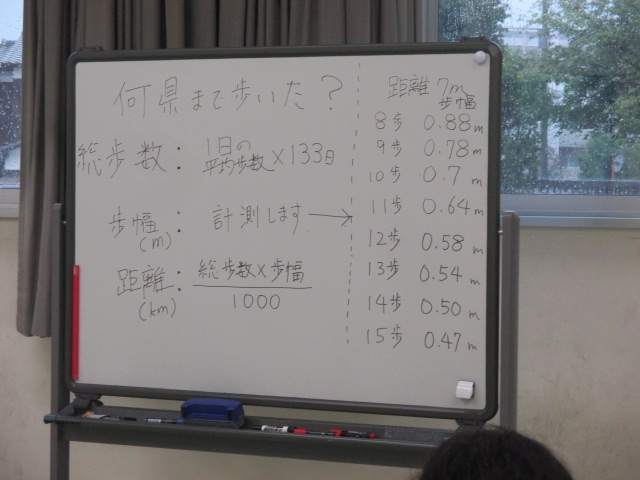 何県まで歩いた?
総歩数: 1日の平均歩数×133日
歩幅(m): 計測します→
距離(km): 総歩数×歩幅
1000
距離 7m
歩幅
8歩 0.88m
9歩 0.78m
10歩 0.7m
11歩 0.64m
12歩 0.58m
13歩 0.54m
14歩 0.50m
15歩 0.47m